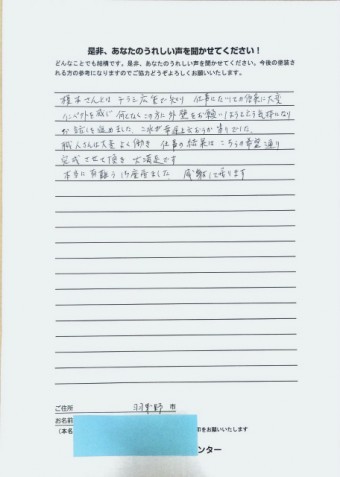 是非、あなたのうれしい声を聞かせてください！
どんなことでも結構です。是非、あなたのうれしい声を聞かせてください。今後の塗装される方の参考になりますのでご協力どうぞよろしくお願いいたします。
さんとは チラシ広告で知り 仕事にたいしての 大変
を感じ 何としてもこの方に外壁をお願いしようと 気持になり
お話しを進めました
職人さんは大変よく働き 仕事の結果は こちらの希望通り
完成させて頂き 大満足です
本当に有難う御座居ました 感謝して居ります
ご住所 羽曳野 市
お名前
（本名 をお願いいたします
ンター